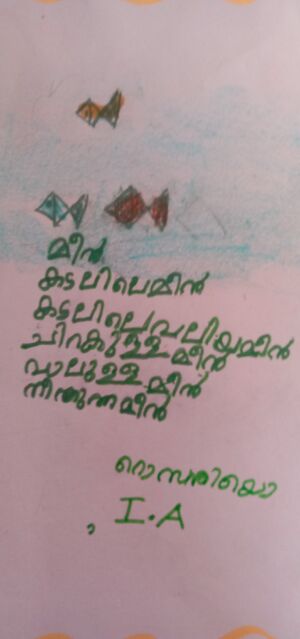 മീൻ
കടലിലെമീൻ
കടലിലെവലിയമീൻ
ചിറകുള്ളമീൻ
വാലുള്ളമീൻ
നീന്തുന്നമീൻ
റൊസരിയൊ
I.A